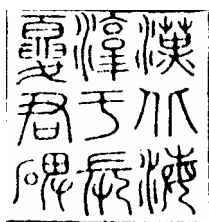 漢北海
淳于長
夏君碑